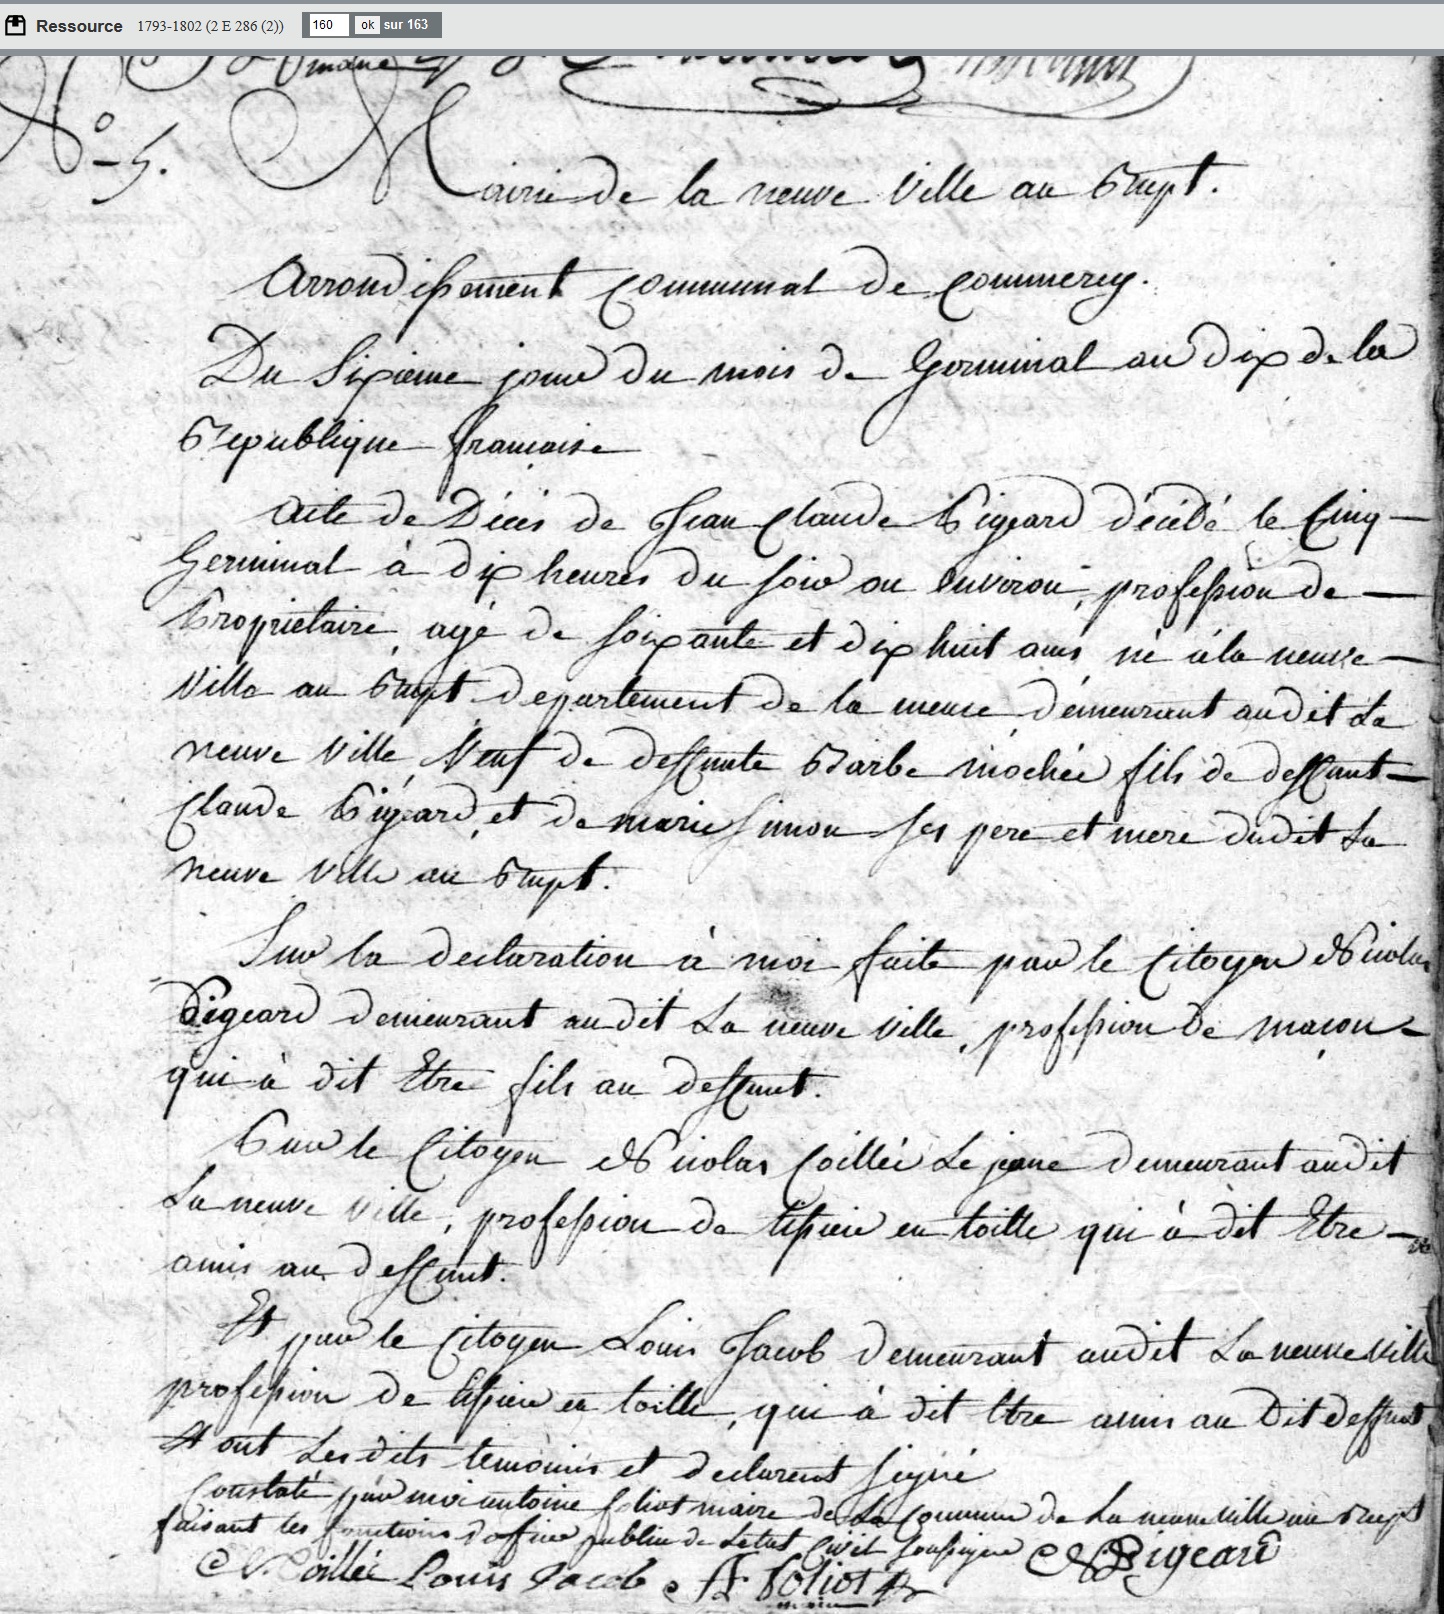 Ressource 1793-1802 (2 E 286 (2)) 160 ok sur 163
N° 5.
Mairie de la neuve Ville au Rupt.
Arrondissement Communal de Commercy.
Du Sixieme jour du mois de Germinal an dix de la
Republique francaise
Acte de Décès de Jean Claude Pigeard décédé le Cinq
Germinal à dix heures du soir ou environ, profession de
Proprietaire, agé de soixante et dix huit ans né à la neuve
Ville au Rupt departement de la meuse demeurant audit La
neuve Ville, Veuf de deffunte Barbe mochée fils de deffunt
Claude Pigeard, et de marie Simon ses pere et mere dudit La
neuve Ville au Rupt.
Sur la declaration à moi faite par le Citoyen Nicolas
Pigeard demeurant audit La neuve Ville, profession de macon
qui à dit Etre fils au deffunt.
Par le Citoyen Nicolas Coillée Le jeune demeurant audit
La neuve Ville, profession de tissier en toille qui à dit Etre
amis au deffunt.
Et par le Citoyen Louis Jacob demeurant audit La neuve Ville
profession de tissier en toille, qui à dit Etre amis au dit deffunt
Et ont Les dits temoins et declarent signé
Constaté par moi antoine foliot maire de La Commune de La neuve ville au Rupt
faisant les fonctions d'officier public de Letat Civil soussigné
N Pigeard
N Coillée Louis Jacob A Foliot
maire